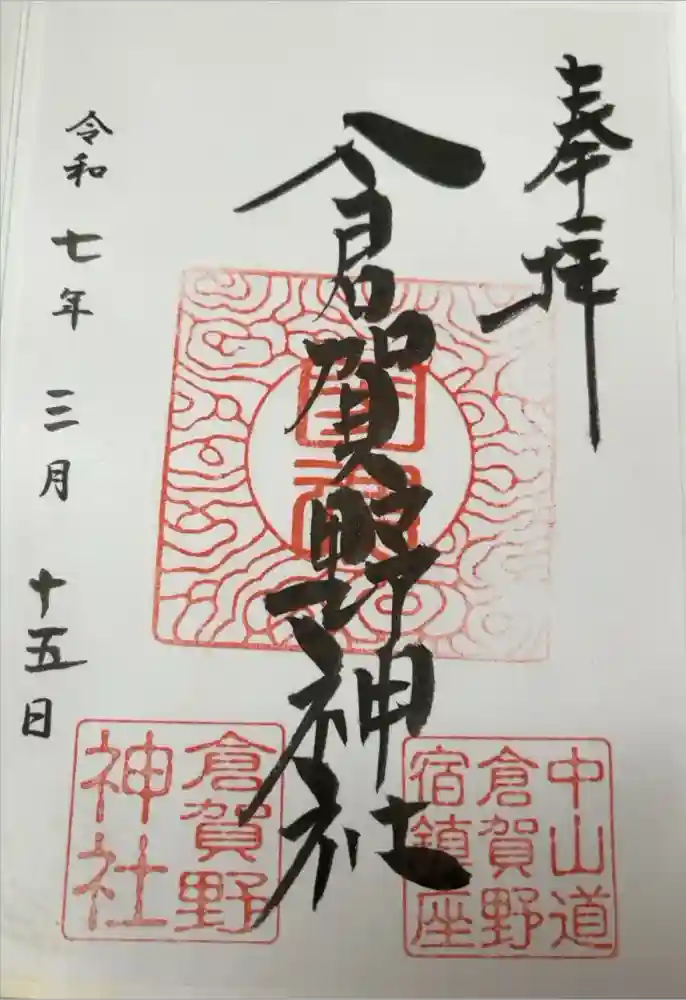 奉拝
倉賀野神社
令和七年三月十五日
中山道
倉賀野
宿鎮座
倉賀野
神社